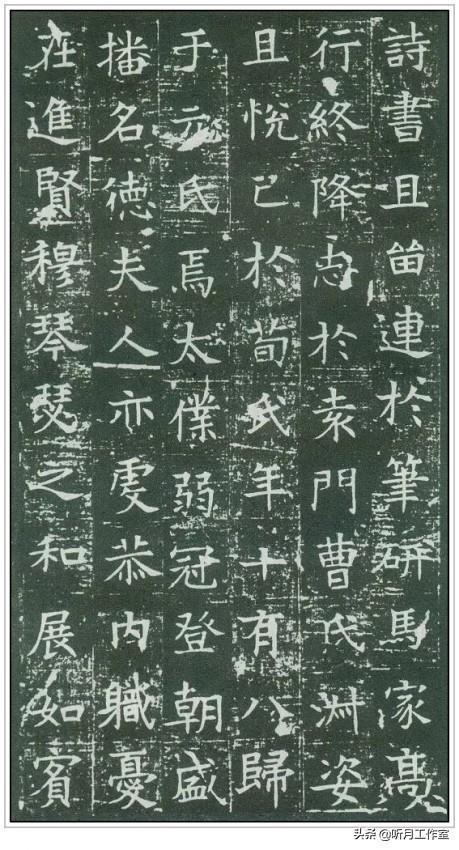 詩書且留連於筆研馬家髙
行終降志於袁門曹氏淑姿
且悅己於荀氏年十有八歸
于元氏焉太僕弱冠登朝盛
播名德夫人亦虔恭內軄憂
在進賢穆琴瑟之和展如賓
头条 @听月工作室